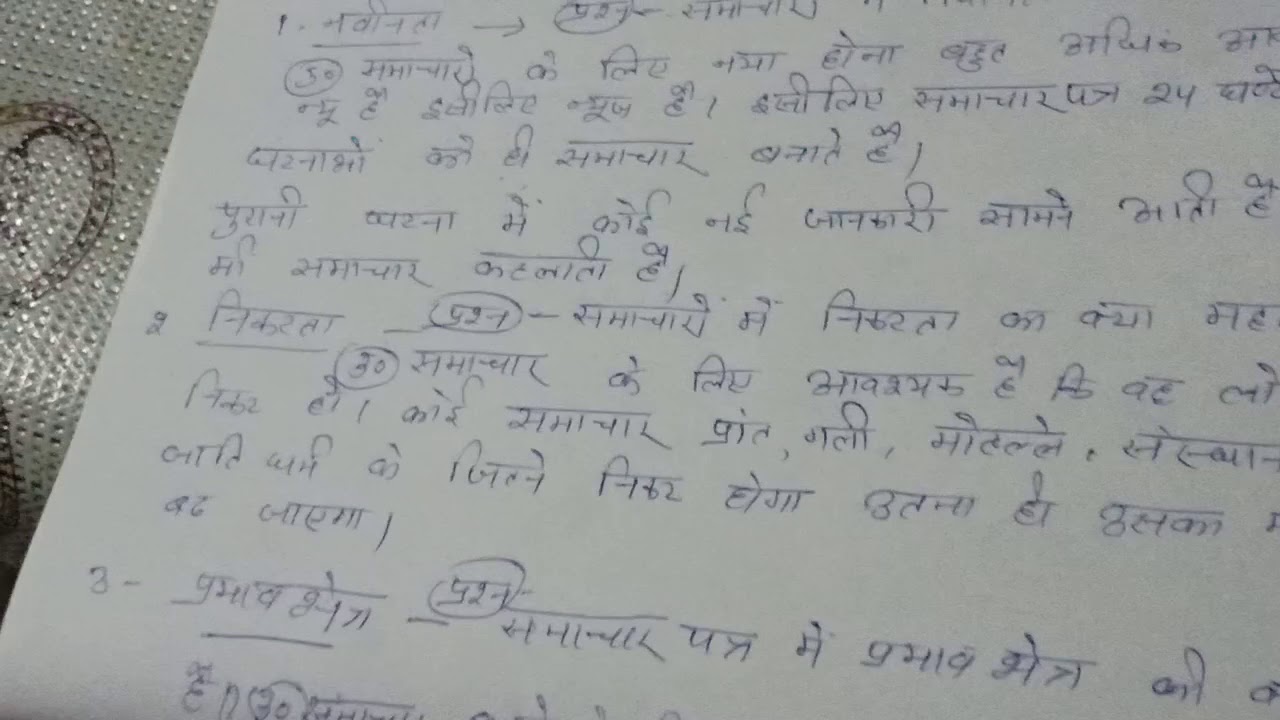 1. नवीनता → प्रश्न - समाचारों
उ० समाचारों के लिए नया होना बहुत अधिक
न्यू है इसीलिए न्यूज है। इसीलिए समाचार पत्र २४ घण्टे
घटनाओं को ही समाचार बनाते है।
पुरानी घटना में कोई नई जानकारी सामने आती है
भी समाचार कहलाती है।
२ निकटता - प्रश्न - समाचारों में निकटता का क्या
उ० समाचार के लिए आवश्यक है कि वह
निकट हो। कोई समाचार प्रांत, गली, मोहल्ले, संस्थान
जाति धर्म के जितने निकट होगा उतना ही उसका
बढ जाएगा।
3 - प्रभाव क्षेत्र - प्रश्न -
समाचार पत्र में प्रभाव क्षेत्र की
है? उ० समाचार